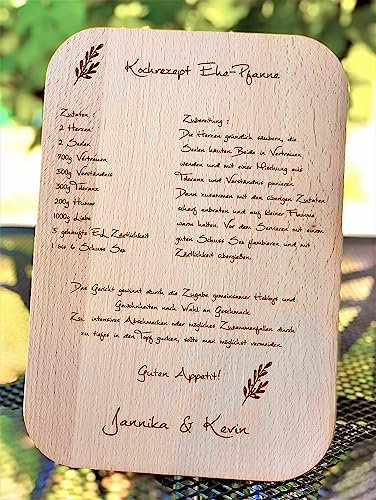 Kochrezept Ehe-Pfanne
Zutaten :
2 Herzen
2 Seelen
700g Vertrauen
500g Verständnis
300g Toleranz
200g Humor
1000g Liebe
5 gehäufte EL Zärtlichkeit
1 bis 6 Schuss Sex
Zubereitung :
Die Herzen gründlich säubern, die
Seelen häuten. Beide in Vertrauen
wenden und mit einer Mischung aus
Toleranz und Verständnis panieren.
Dann zusammen mit den übrigen Zutaten
scharf anbraten und auf kleiner Flamme
warm halten. Vor dem Servieren mit einem
guten Schuss Sex flambieren und mit
Zärtlichkeit übergießen.
Das Gericht gewinnt durch die Zugabe gemeinsamer Hobbys und
Gewohnheiten nach Wahl an Geschmack.
Zu intensives Abschmecken oder mögliches Zusammenfallen durch
zu tiefes in den Topf gucken, sollte man möglichst vermeiden.
Guten Appetit!
Jannika & Kevin